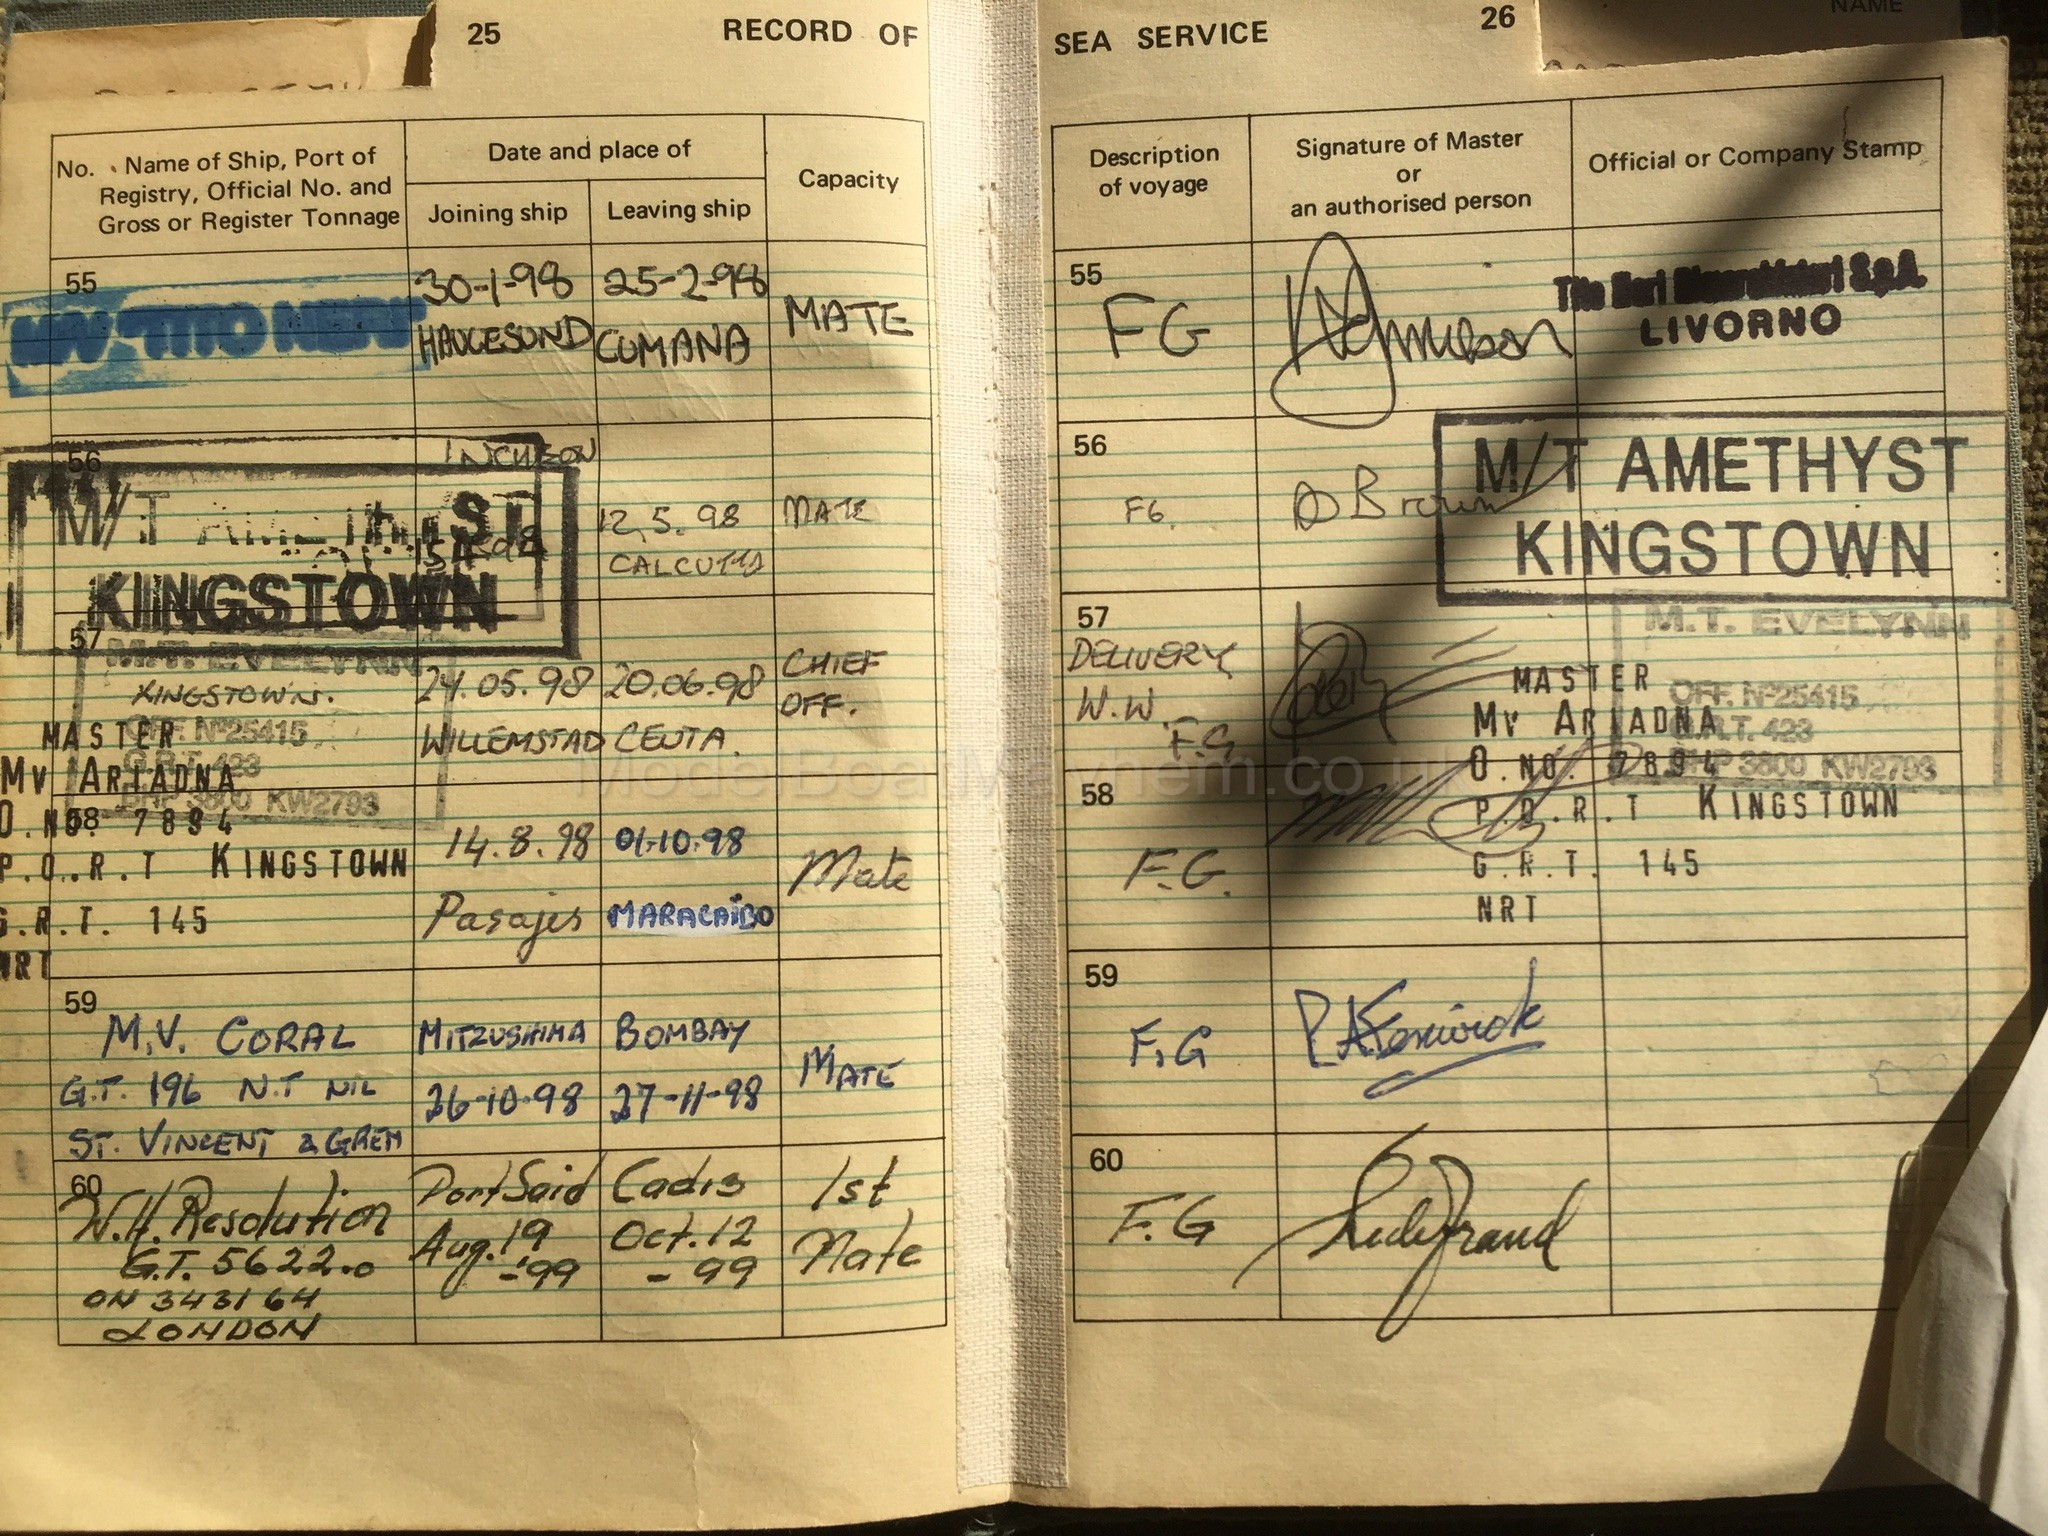 25 RECORD OF
SEA SERVICE 26
NAME
No. Name of Ship, Port of
Registry, Official No. and
Gross or Register Tonnage
Date and place of
Joining ship
Leaving ship
Capacity
Description
of voyage
Signature of Master
or
an authorised person
Official or Company Stamp
55
30-1-98
HAUGESUND
25-2-98
CUMANA
MATE
55
FG
LIVORNO
56
M/T AMETHYST
KINGSTOWN
12.5.98
CALCUTTA
MATE
56
FG.
D Brown
M/T AMETHYST
KINGSTOWN
57
M.T. EVELYNN
KINGSTOWN.
OFF. Nº25415
G.R.T. 423
BHP 3800 KW2793
24.05.98
WILLEMSTAD
20.06.98
CEUTA.
CHIEF
OFF.
57
DELIVERY
W.W.
F.G
M.T. EVELYNN
OFF. Nº25415
G.R.T. 423
BHP 3800 KW2793
58
MASTER
MV ARIADNA
O.NO. 7894
P.O.R.T KINGSTOWN
G.R.T. 145
NRT
14.8.98
Pasajes
01-10-98
MARACAIBO
Mate
58
F.G.
MASTER
MV ARIADNA
O.NO. 7894
P.O.R.T KINGSTOWN
G.R.T. 145
NRT
59
M.V. CORAL
G.T. 196 N.T NIL
ST. VINCENT & GREN
MITZUSHIMA
26-10-98
BOMBAY
27-11-98
MATE
59
F.G
60
W.H. Resolution
G.T. 5622.0
ON 343164
LONDON
Port Said
Aug. 19
-'99
Cadis
Oct. 12
- 99
1st
Mate
60
F.G